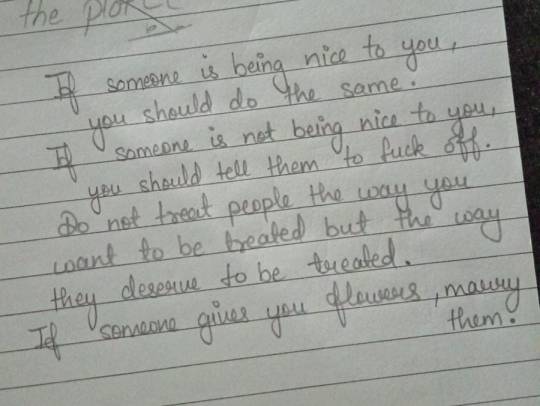 the
If someone is being nice to you,
you should do the same.
If someone is not being nice to you,
you should tell them to fuck off.
Do not treat people the way you
want to be treated but the way
they deserve to be treated.
If someone gives you flowers, marry
them.